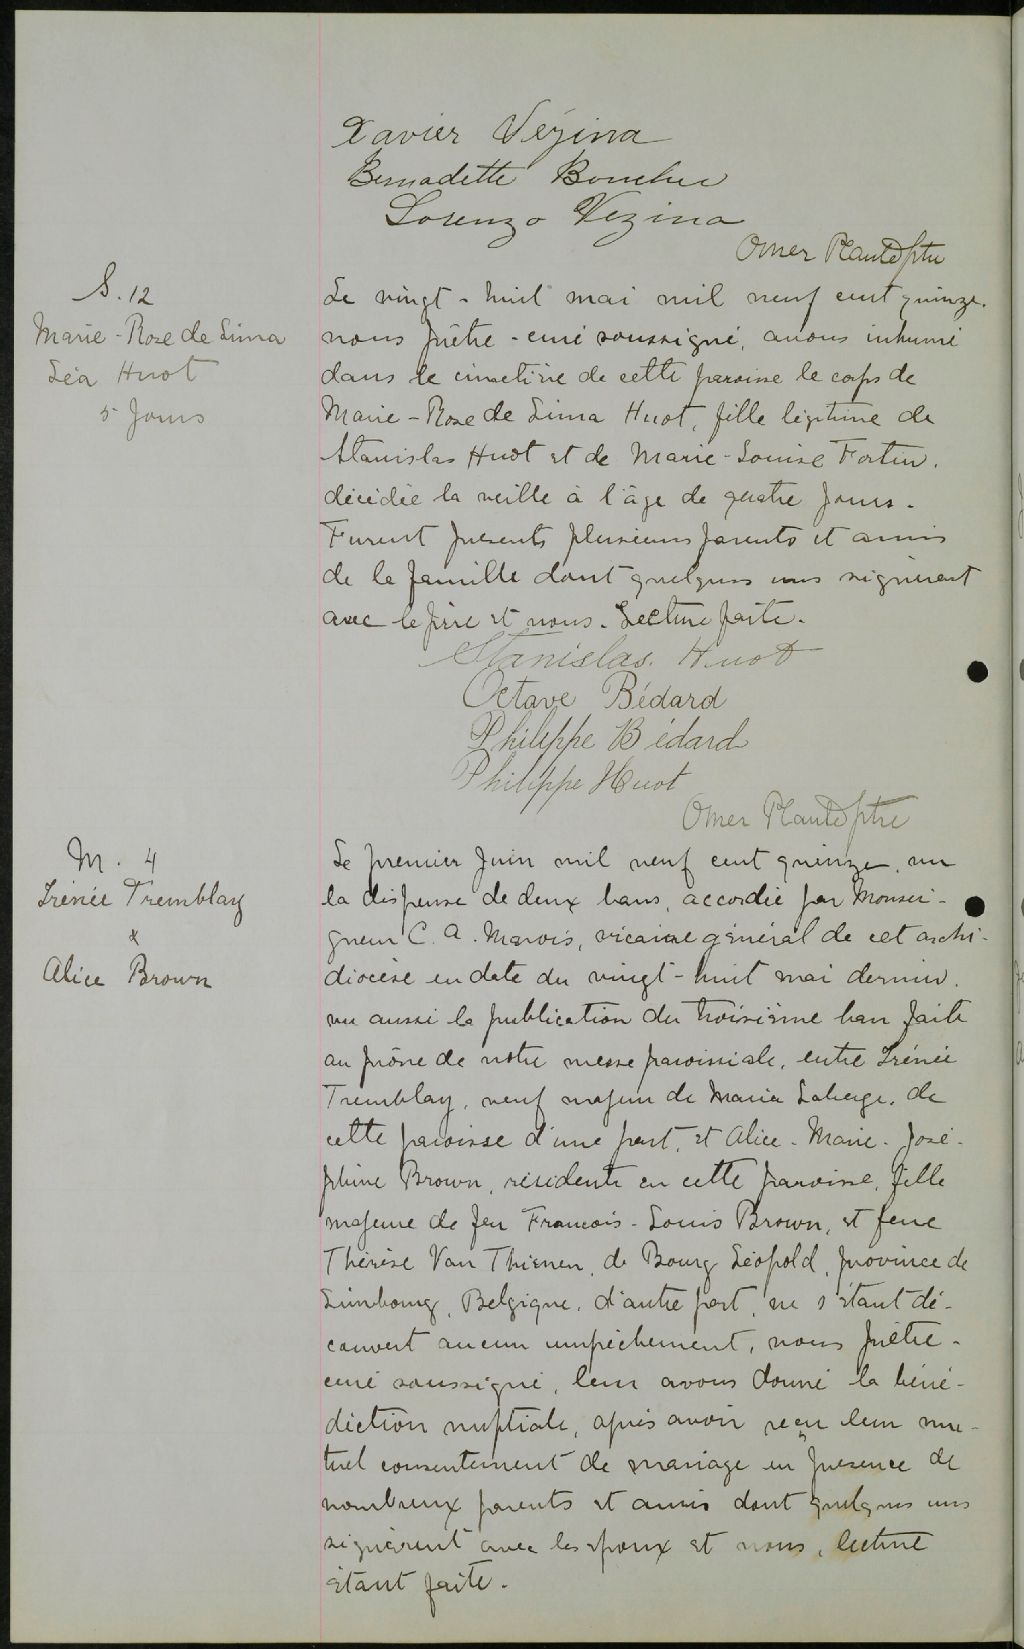 Xavier Vézina
Bernadette Boucher
Lorenzo Vezina
Omer Plante Ptre
S. 12
Marie-Rose de Lima
Léa Huot
5 Jours
Le vingt-huit mai mil neuf cent quinze.
nous prêtre-curé soussigné, avons inhumé
dans le cimetière de cette paroisse le corps de
Marie-Rose de Lima Huot, fille légitime de
Stanislas Huot et de Marie-Louise Fortin.
décédée la veille à l'âge de quatre jours.
Furent présents plusieurs parents et amis
de la famille dont quelques uns signèrent
avec le père et nous. Lecture faite.
Stanislas Huot
Octave Bédard
Philippe Bédard
Philippe Huot
Omer Plante Ptre
M. 4
Irénée Tremblay
&
Alice Brown
Le premier Juin mil neuf cent quinze, vu
la dispense de deux bans, accordée par Monsei-
gneur C. A. Marois, vicaire général de cet archi-
diocèse en date du vingt-huit mai dernier.
vu aussi la publication du troisième ban faite
au prône de notre messe paroissiale, entre Irénée
Tremblay, veuf majeur de Maria Laberge, de
cette paroisse d'une part, et Alice-Marie-José-
phine Brown, résidente en cette paroisse, fille
majeure de feu François-Louis Brown, et feue
Thérèse Van Thienen, de Bourg Léopold, province de
Limbourg, Belgique, d'autre part, ne s'étant dé-
couvert aucun empêchement, nous prêtre-
curé soussigné, leur avons donné la béné-
diction nuptiale, après avoir reçu leur mu-
tuel consentement de mariage en présence de
nombreux parents et amis dont quelques uns
signèrent avec les époux et nous, lecture
étant faite.